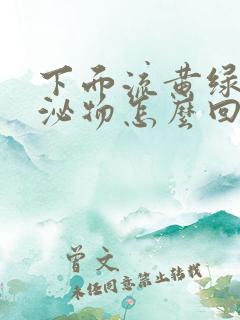 下而流黄绿
泌物怎麼回
曾文
未经同意禁止转载